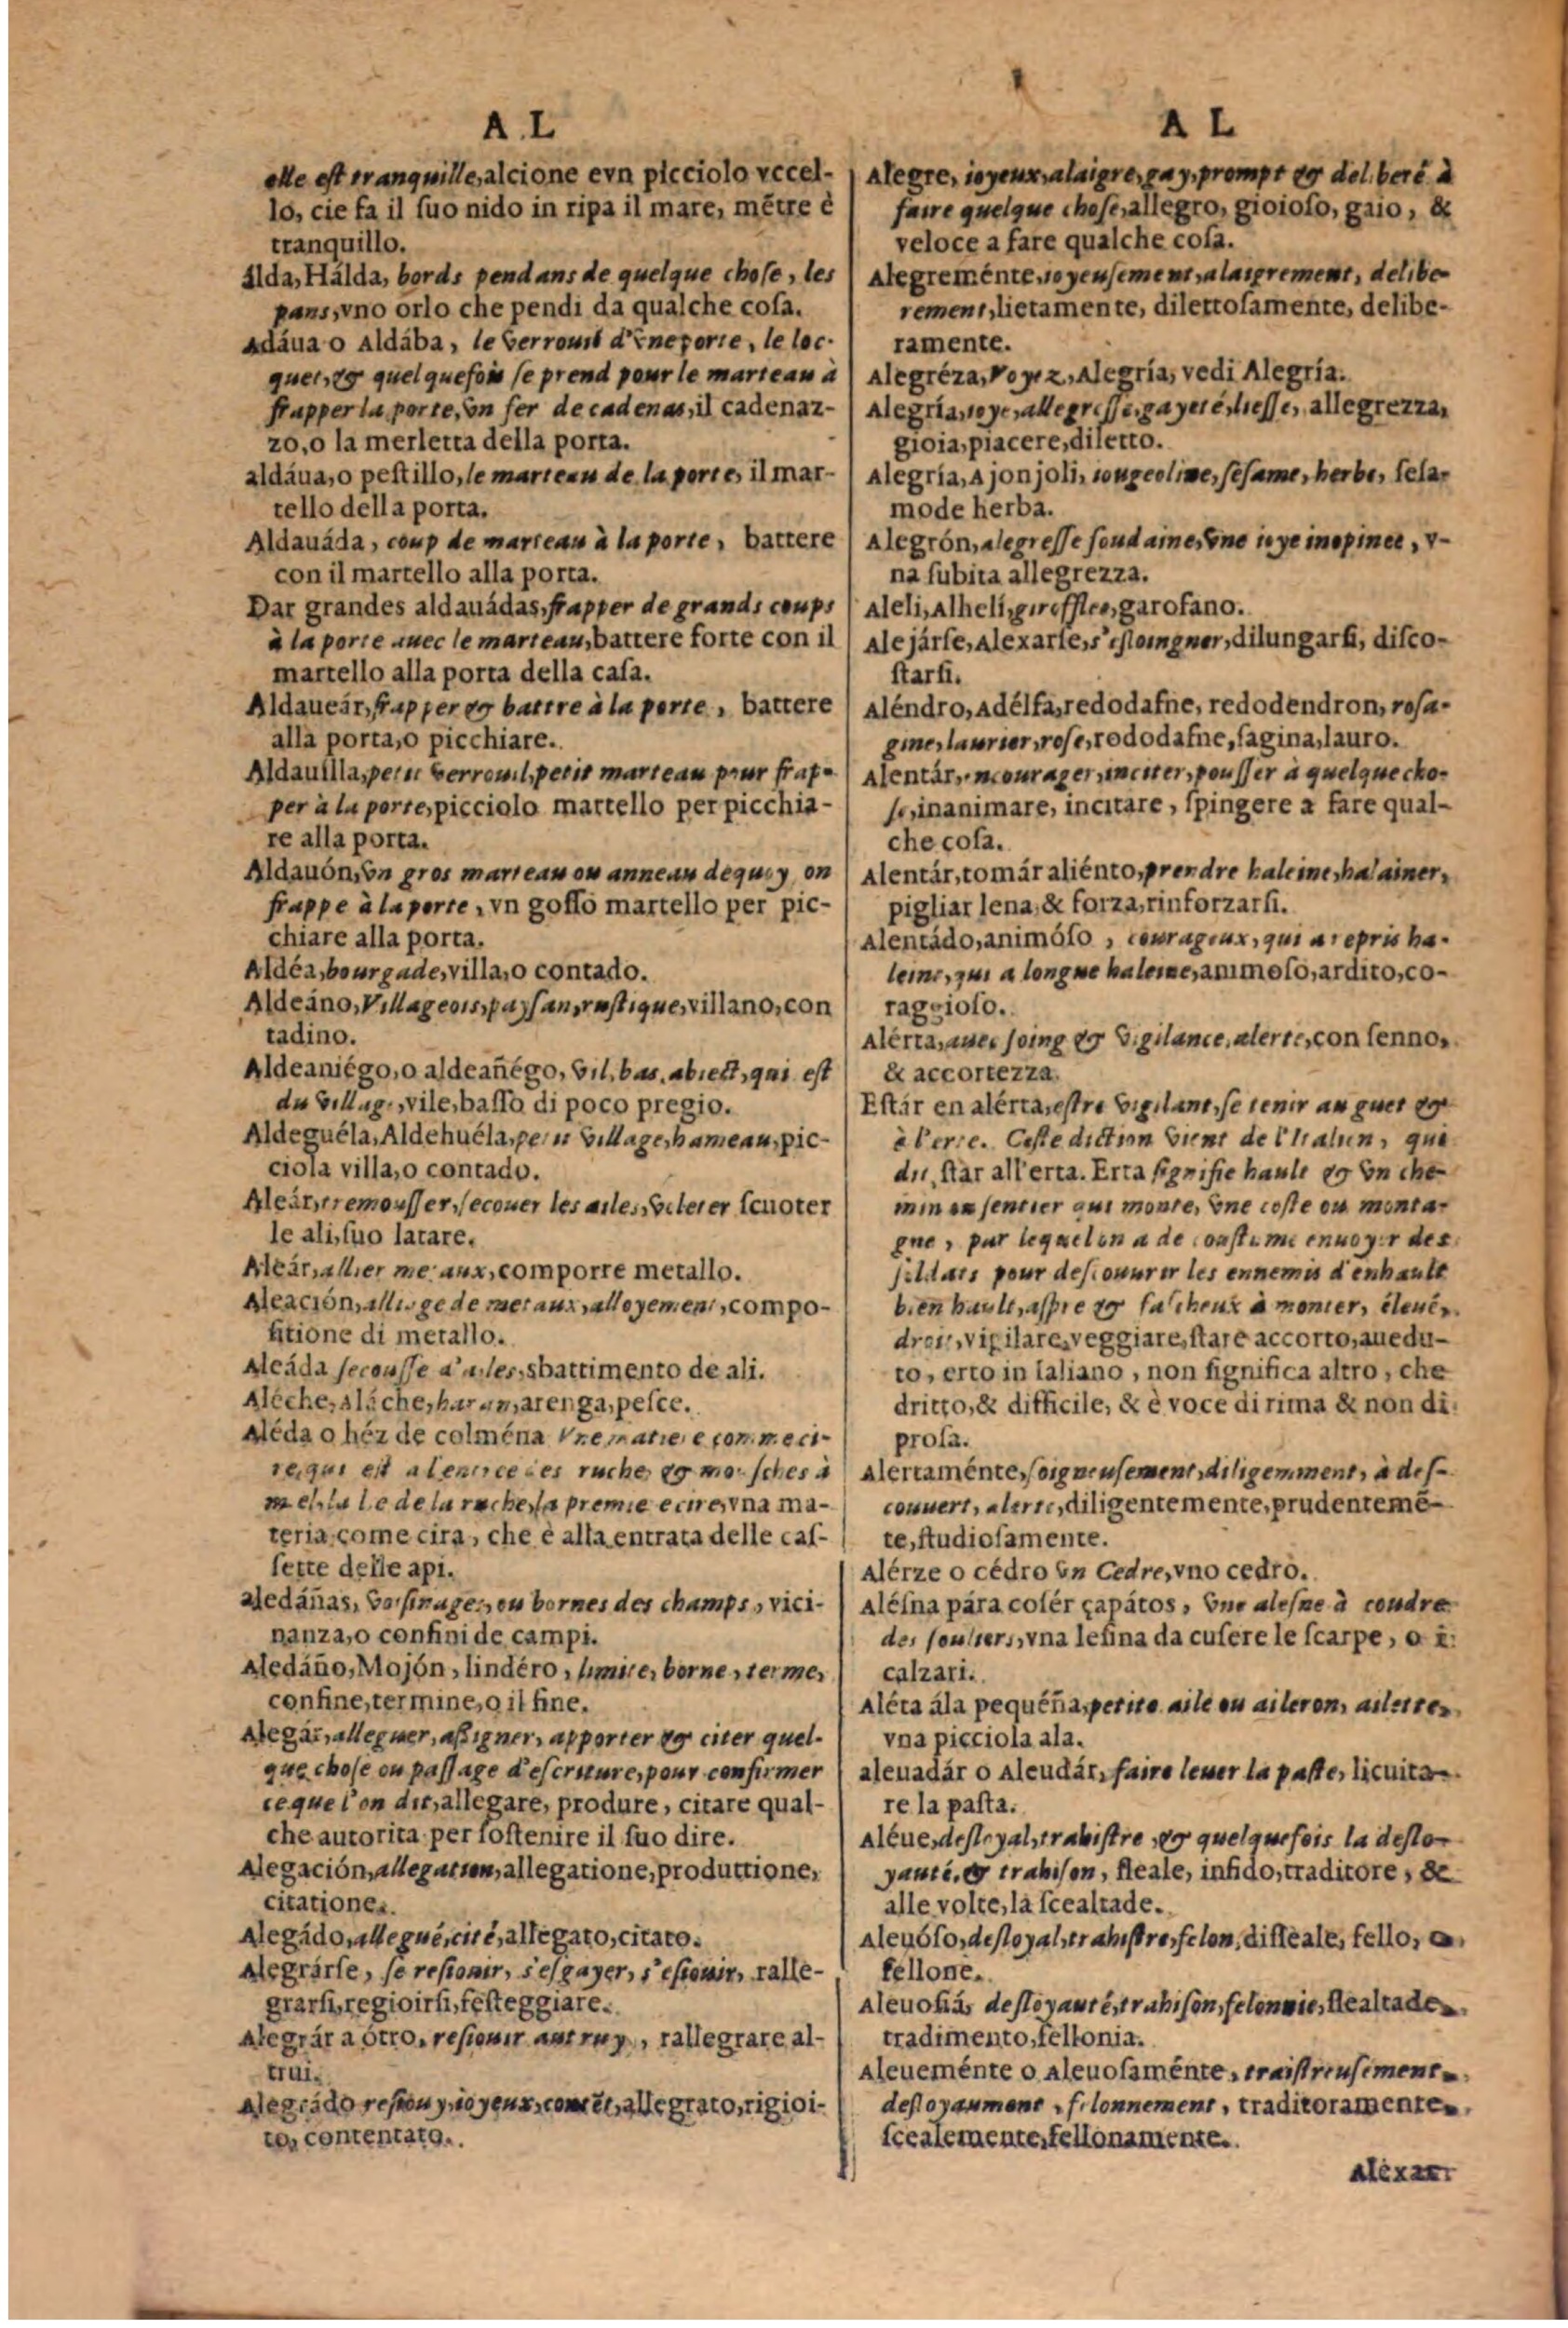 A L
elle est tranquille, alcione evn picciolo vccel-
lo, cie fa il ſuo nido in ripa il mare, mẽtre è
tranquillo.
álda, Hálda, bords pendans de quelque choſe, les
pans, vno orlo che pendi da qualche coſa.
Adáua o Aldába, le verrouil d'vne porte, le loc-
quet, & quelquefois ſe prend pour le marteau à
frapper la porte, vn fer de cadenas, il cadenaz-
zo, o la merletta della porta.
aldáua, o peſtillo, le marteau de la porte, il mar-
tello della porta.
Aldauáda, coup de marteau à la porte, battere
con il martello alla porta.
Dar grandes aldauádas, frapper de grands coups
à la porte auec le marteau, battere forte con il
martello alla porta della caſa.
Aldaueár, frapper & battre à la porte, battere
alla porta, o picchiare.
Aldauílla, petit verrouil, petit marteau pour frap-
per à la porte, picciolo martello per picchia-
re alla porta.
Aldauón, vn gros marteau ou anneau dequoy on
frappe à la porte, vn goſſo martello per pic-
chiare alla porta.
Aldéa, bourgade, villa, o contado.
Aldeáno, Villageois, payſan, ruſtique, villano, con
tadino.
Aldeaniégo, o aldeañégo, vil, bas, abiect, qui eſt
du village, vile, baſſo di poco pregio.
Aldeguéla, Aldehuéla, petit village, hameau, pic-
ciola villa, o contado.
Aleár, tremouſſer, ſecouer les ailes, voleter ſcuoter
le ali, ſuo latare.
Aleár, allier metaux, comporre metallo.
Aleación, alliage de metaux, alloyement, compo-
ſitione di metallo.
Aleáda ſecouſſe d'ailes, sbattimento de ali.
Aléche, Aláche, haran, arenga, peſce.
Aléda o héz de colména vne matiere comme ci-
re, qui eſt a l'entree des ruches & mouſches à
miel, la lie de la ruche, la premiere cire, vna ma-
teria come cira, che è alla entrata delle caſ-
ſette delle api.
aledáñas, voiſinages, ou bornes des champs, vici-
nanza, o confini de campi.
Aledáño, Mojón, lindéro, limite, borne, terme,
confine, termine, o il fine.
Alegár, alleguer, aſſigner, apporter & citer quel-
que choſe ou paſſage d'eſcriture, pour confirmer
ce que l'on dit, allegare, produre, citare qual-
che autorita per ſoſtenire il ſuo dire.
Alegación, allegation, allegatione, produttione,
citatione.
Alegádo, allegué, cité, allegato, citato.
Alegrárſe, ſe reſiouir, s'eſgayer, s'eſiouir, ralle-
grarſi, regioirſi, feſteggiare.
Alegrár a ótro, reſiouir autruy, rallegrare al-
trui.
Alegrádo reſiouy, ioyeux, contẽt, allegrato, rigioi-
to, contentato.
A L
Alegre, ioyeux, alaigre, gay, prompt & deliberé à
faire quelque choſe, allegro, gioioſo, gaio, &
veloce a fare qualche coſa.
Alegreménte, ioyeuſement, alaigrement, delibe-
rement, lietamente, dilettoſamente, delibe-
ramente.
Alegréza, Voyez, Alegría, vedi Alegría.
Alegría, ioye, allegreſſe, gayeté, lieſſe, allegrezza,
gioia, piacere, diletto.
Alegría, Ajonjoli, iougeoline, ſeſame, herbe, ſeſa-
mode herba.
Alegrón, alegreſſe ſoudaine, vne ioye inopinee, v-
na ſubita allegrezza.
Aleli, Alhelí, giroffles, garofano.
Alejárſe, Alexarſe, s'eſloingner, dilungarſi, diſco-
ſtarſi.
Aléndro, Adélfa, redodafne, redodendron, roſa-
gine, laurier, roſe, rododafne, ſagina, lauro.
Alentár, encourager, inciter, pouſſer à quelque cho-
ſe, inanimare, incitare, ſpingere a fare qual-
che coſa.
Alentár, tomár aliénto, prendre haleine, halainer,
pigliar lena & forza, rinforzarſi.
Alentádo, animóſo, courageux, qui a repris ha-
leine, qui a longue haleine, animoſo, ardito, co-
raggioſo.
Alérta, auec ſoing & vigilance, alerte, con ſenno,
& accortezza.
Eſtár en alérta, eſtre vigilant, ſe tenir au guet &
à l'erte. Ceſte diction vient de l'Italien, qui
dit, ſtar all'erta. Erta ſignifie hault & vn che-
min ou ſentier qui monte, vne coſte ou monta-
gne, par lequel on a de couſtume enuoyer des
ſoldats pour deſcouurir les ennemis d'enhault
bien hault, aſpre & faſcheux à monter, éleué,
droit, vigilare, veggiare, ſtare accorto, auedu-
to, erto in Ialiano, non ſignifica altro, che
dritto, & difficile, & è voce di rima & non di
proſa.
Alertaménte, ſoigneuſement, diligemment, à deſ-
couuert, alerte, diligentemente, prudentemẽ-
te, ſtudioſamente.
Alérze o cédro vn Cedre, vno cedro.
Aléſna pára coſér çapátos, vne aleſne à coudre
des ſouliers, vna leſina da cuſere le ſcarpe, o i
calzari.
Aléta ála pequéña, petite aile ou aileron, ailette,
vna picciola ala.
aleuadár o Aleudár, faire leuer la paſte, licuita-
re la paſta.
Aléue, deſloyal, trahiſtre, & quelquefois la deſlo-
yauté, & trahiſon, ſleale, infido, traditore, &
alle volte, la ſcealtade.
Aleuóſo, deſloyal, trahiſtre, felon, diſleale, fello, o
fellone.
Aleuoſiá, deſloyauté, trahiſon, felonnie, ſlealtade,
tradimento, fellonia.
Aleueménte o Aleuoſaménte, traiſtreuſement,
deſloyaument, felonnement, traditoramente,
ſcealemente, fellonamente.
Aléxar-